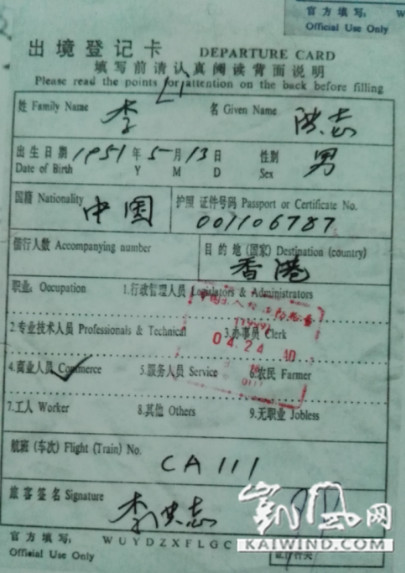 官方填写: WU
Official Use Only
出境登记卡 DEPARTURE CARD
填写前请认真阅读背面说明
Please read the points for attention on the back before filling
姓 Family Name 李 Li 名 Given Name 洪志
出生日期 1951 年 5 月 13 日 性别 男
Date of Birth Y M D Sex
国籍 Nationality 中国 护照 证件号码 Passport or Certificate No.
001106787
偕行人数 Accompanying number 目的地(国家) Destination (country)
香港
职业: Occupation 1.行政管理人员 Legislators & Administrators
2.专业技术人员 Professionals & Technical 3.办事员 Clerk
04.24
4.商业人员 Commerce 5.服务人员 Service 6.农民 Farmer
7.工人 Worker 8.其他 Others 9.无职业 Jobless
航班(车次) Flight (Train) No.
CA111
旅客签名 Signature
李洪志
官方填写: WUYDZXFLGC
Official Use Only
凯风网
KAIWIND.COM